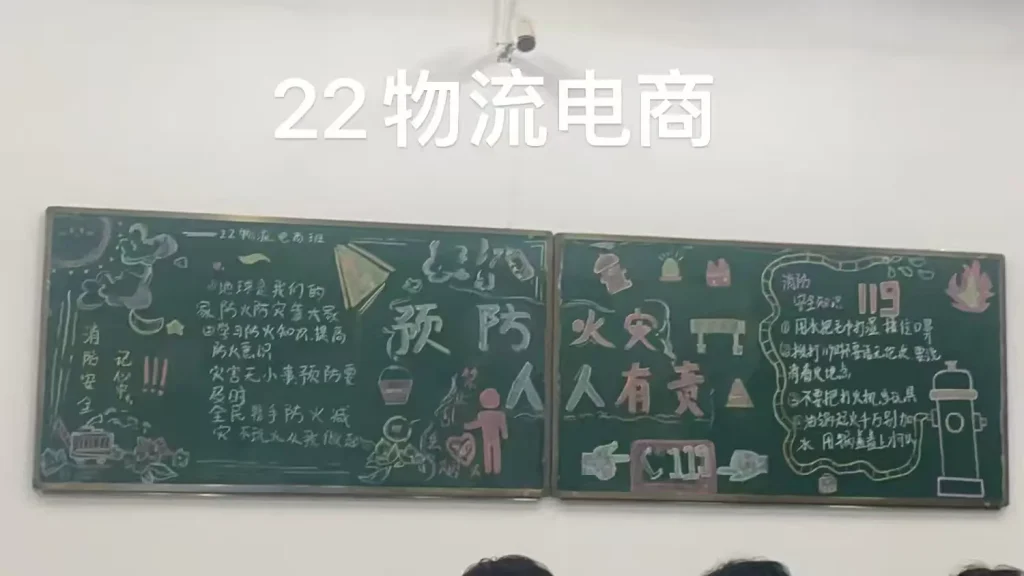 22物流电商
22物流电商班
消防安全
记心中!!!
地球是我们的
家,防火防灾靠大家
学习防火知识,提高
防火意识
灾害无小事预防要
全民携手防火减
灾
预防火灾
人人有责
119
消防
安全知识
119
①用水把毛巾打湿 捂住口鼻
②拨打119
有着火地点
③不要把打火机当玩具
油锅起火千万别加
水 用锅盖盖上